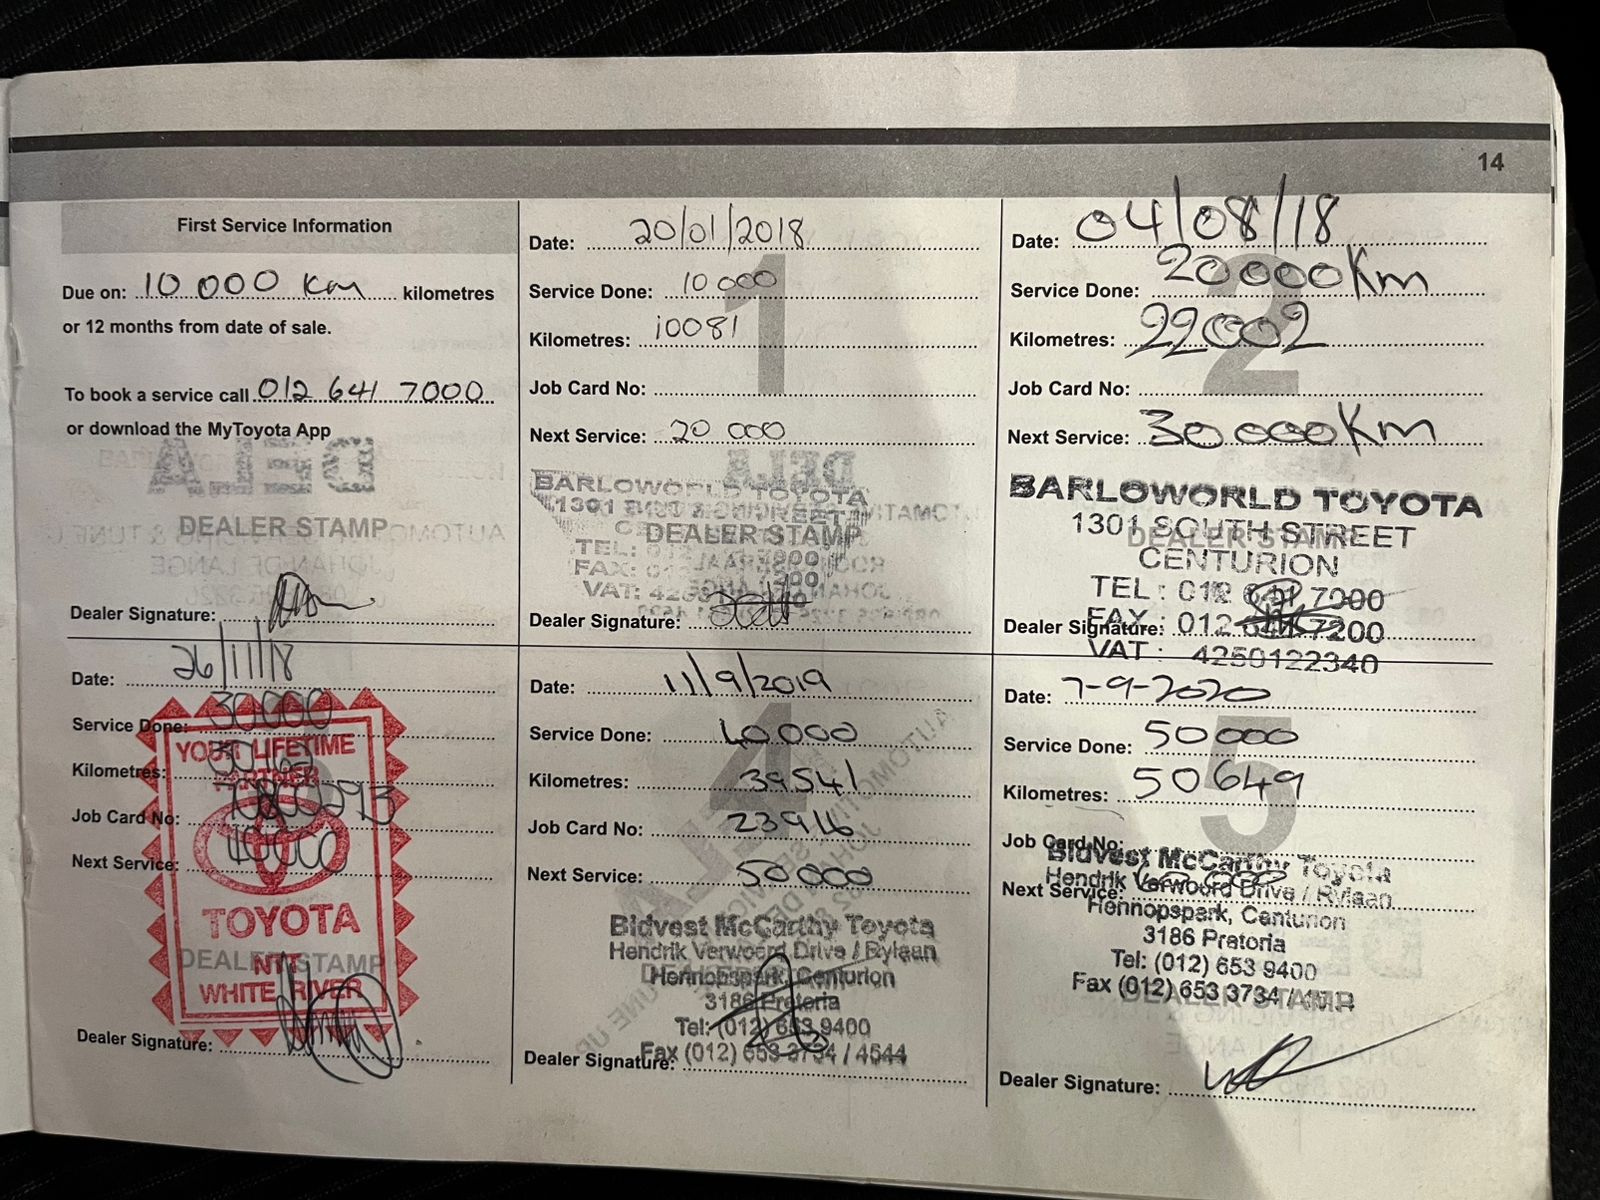 14
First Service Information
Due on: 10 000 km kilometres
or 12 months from date of sale.
To book a service call 012 641 7000
or download the MyToyota App
DEALER STAMP
Dealer Signature:
Date: 20/01/2018
1
Service Done: 10 000
Kilometres: 10081
Job Card No:
Next Service: 20 000
BARLOWORLD TOYOTA
1301
DEALER STAMP
TEL:
FAX:
VAT:
Dealer Signature:
Date: 04/08/18
2
Service Done: 20000Km
Kilometres: 22002
Job Card No:
Next Service: 30000Km
BARLOWORLD TOYOTA
1301 SOUTH STREET
DEALER STAMP
CENTURION
TEL : 012 641 7000
FAX : 012 641 7200
Dealer Signature:
VAT : 4250122340
Date: 26/11/18
Service Done: 30000
YOUR LIFETIME
PARTNER
Kilometres:
Job Card No:
Next Service: 40000
TOYOTA
DEALER STAMP
NTT
WHITE RIVER
Dealer Signature:
Date: 11/9/2019
4
Service Done: 40000
Kilometres: 39541
Job Card No: 23916
Next Service: 50000
Bidvest McCarthy Toyota
Hendrik Verwoerd Drive / Rylaan
Hennopspark, Centurion
3186 Pretoria
Tel: (012) 653 9400
Fax (012) 653 3734 / 4544
Dealer Signature:
Date: 7-9-2020
5
Service Done: 50000
Kilometres: 50649
Job Card No:
Bidvest McCarthy Toyota
Hendrik Verwoerd Drive / Rylaan
Next Service:
Hennopspark, Centurion
3186 Pretoria
Tel: (012) 653 9400
Fax (012) 653 3734 /
DEALER STAMP
Dealer Signature: